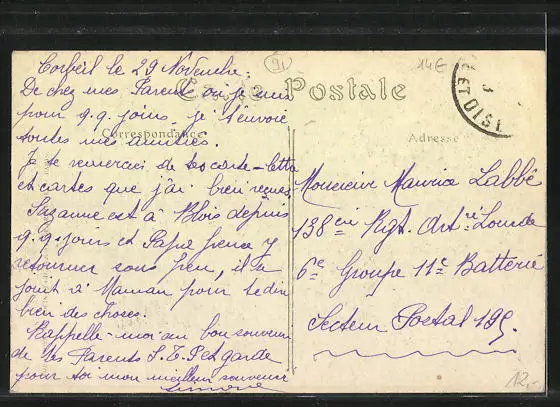 91
14E
Corbeil le 29 Novembre.
Carte Postale
ET OISE
De chez mes Parents où je suis
pour q.q. jours, je t'envoie
toutes mes amitiés.
Correspondance
Adresse
Je te remercie de tes carte-lettre
et cartes que j'ai bien reçues
Suzanne est à Blois depuis
q.q. jours et Papa pense y
retourner sous peu, il se
joint à Maman pour te dire
bien des choses.
Rappelle-moi au bon souvenir
de tes Parents S.T.P. et garde
pour toi mon meilleur souvenir
Simone
Monsieur Maurice Labbé
138eme Rgt. Artrie Lourde
6e Groupe 11e Batterie
Secteur Postal 195.
12,-